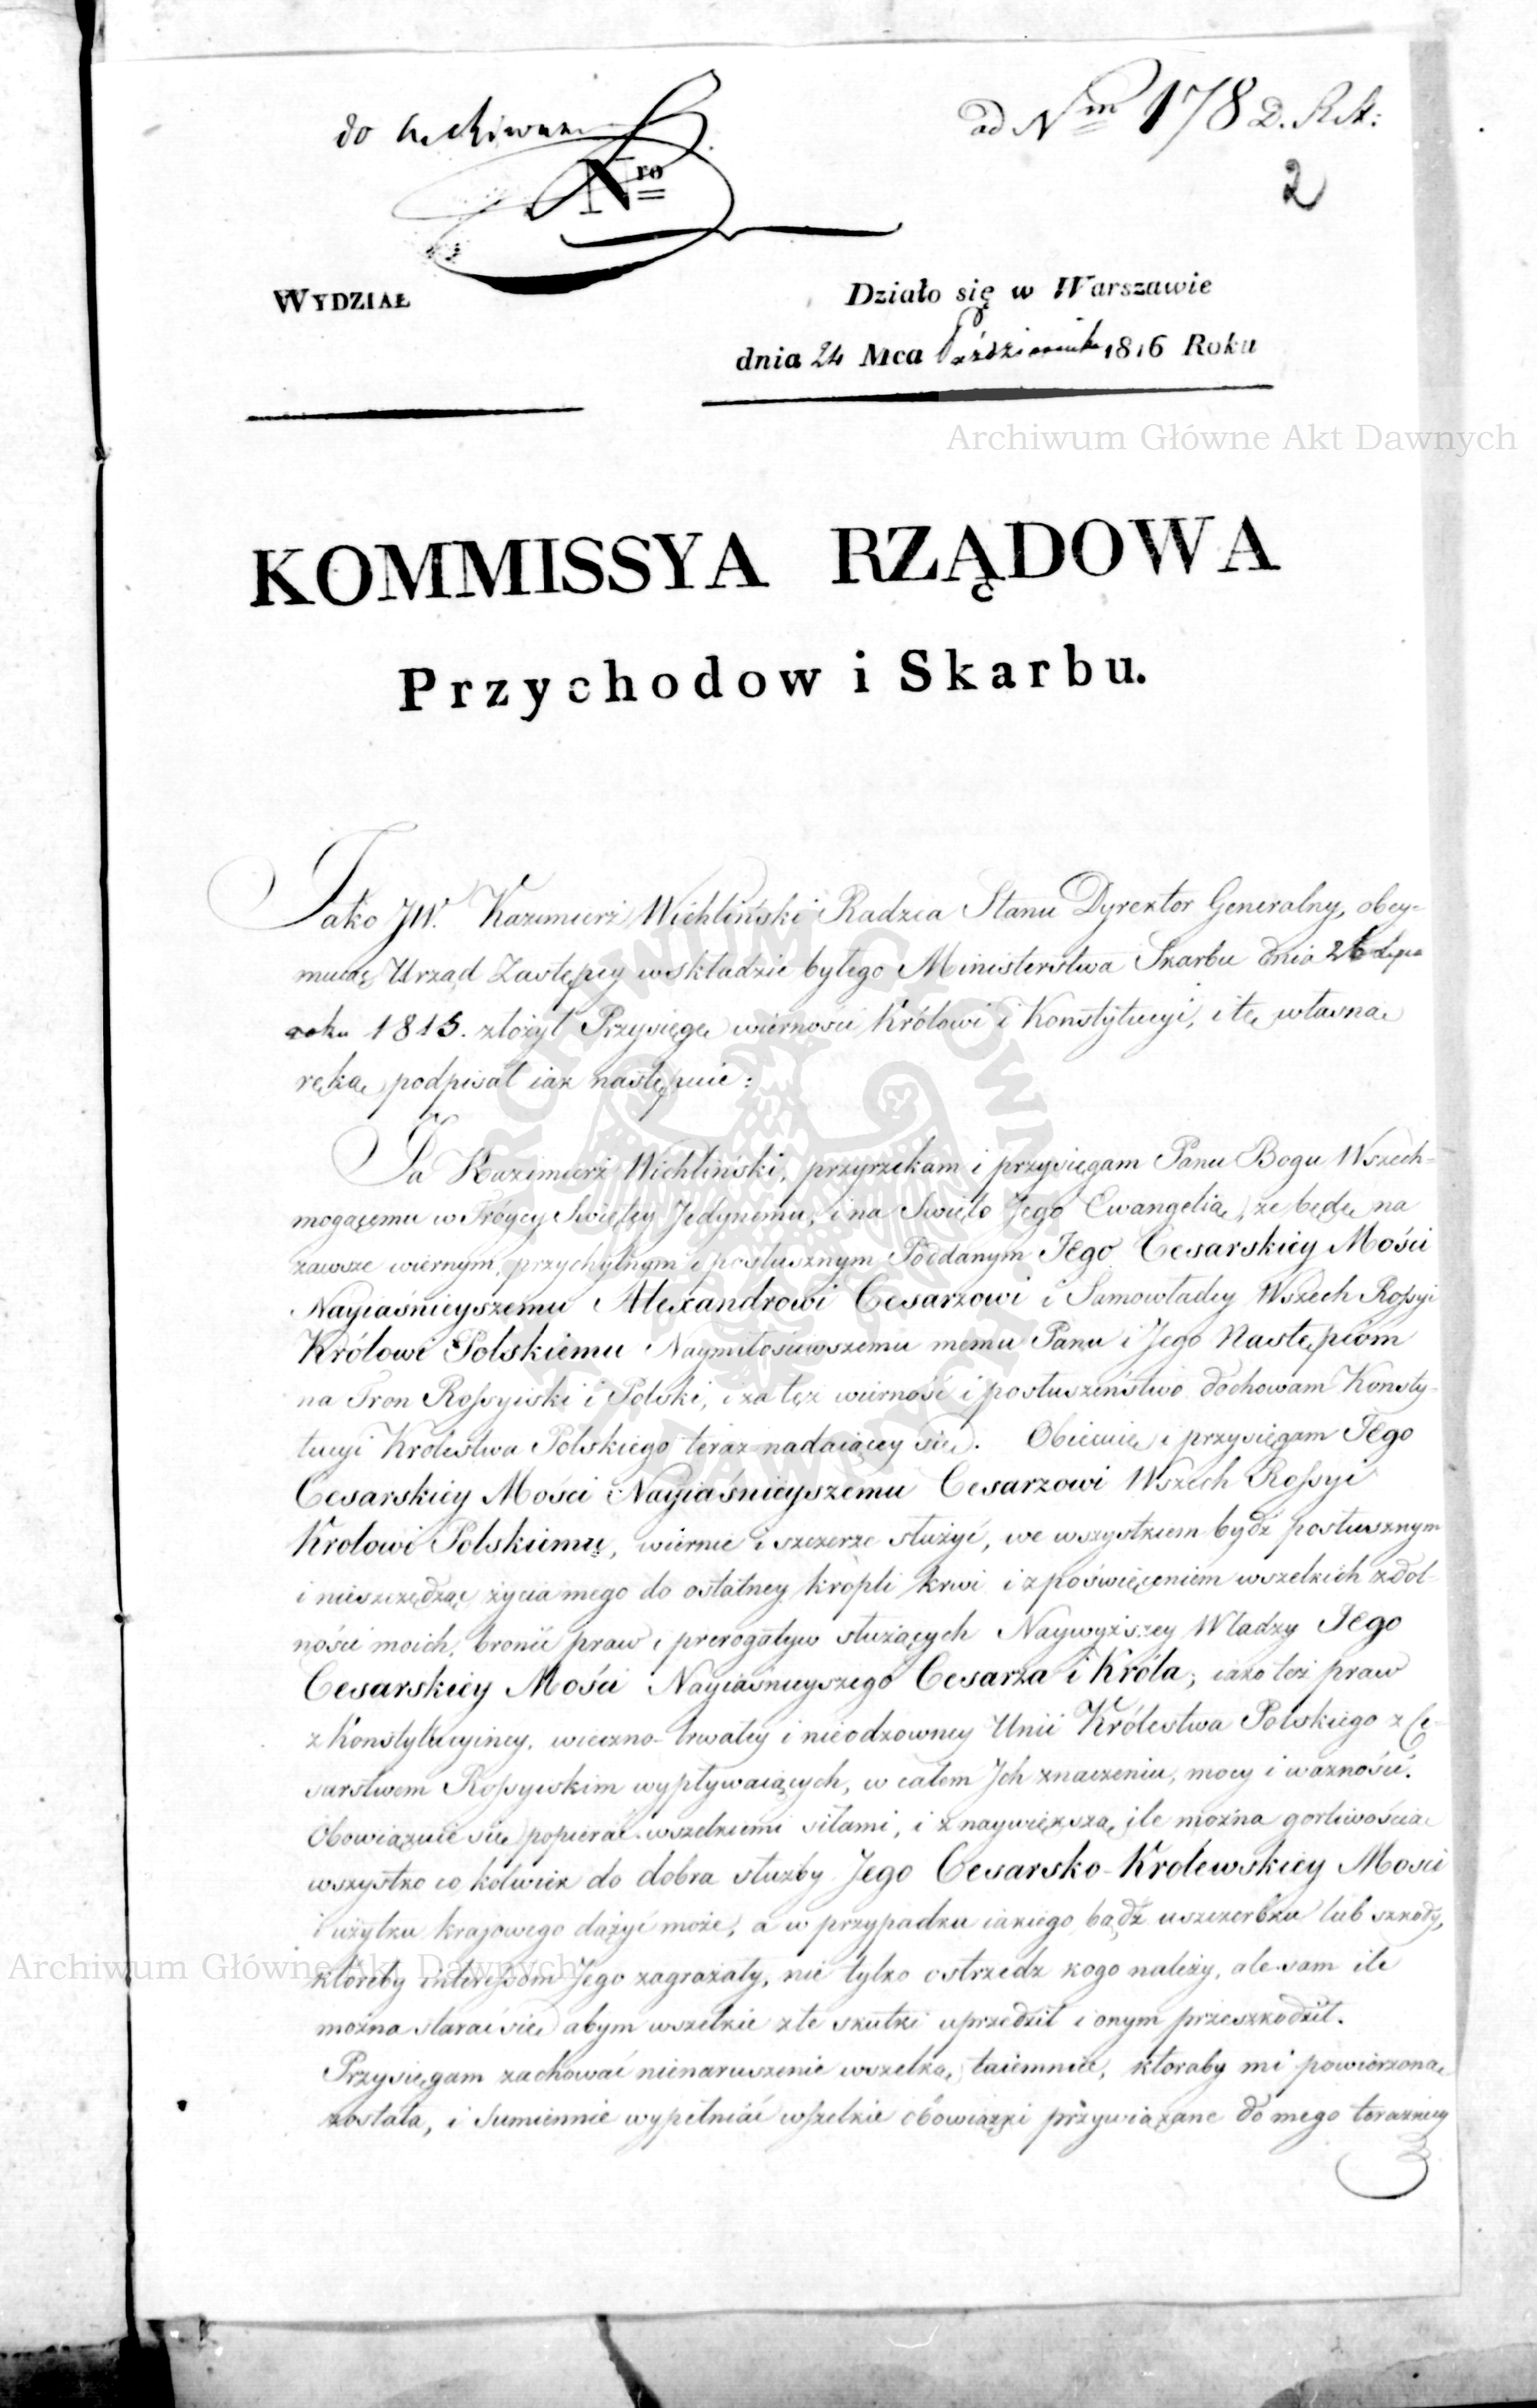 do Archiwum
ad Nm 178 D. R. St:
Nro
2
WYDZIAŁ
Działo się w Warszawie
dnia 24 Mca Października 1816 Roku
Archiwum Główne Akt Dawnych
KOMMISSYA RZĄDOWA
Przychodow i Skarbu.
Jako JW. Kazimierz Wichliński Radzca Stanu Dyrektor Generalny, obey-
muiąc Urząd Zastępcy w składzie byłego Ministerstwa Skarbu dnia 26 Lipca
roku 1815. złożył Przysięgę wierności Królowi i Konstytucyi, i tę własną
ręką podpisał iak następuie:
Ja Kazimierz Wichliński, przyrzekam i przysięgam Panu Bogu Wszech-
mogącemu w Tróycy Swiętey Jedynemu, i na Swiętą Jego Ewangelią, że będę na
zawsze wiernym, przychylnym i posłusznym Poddanym Jego Cesarskiey Mości
Nayiaśnieyszemu Alexandrowi Cesarzowi i Samowładcy Wszech Rossyi
Królowi Polskiemu Naymiłościwszemu memu Panu i Jego Następcom
na Tron Rossyiski i Polski, i za tęż wierność i posłuszeństwo dochowam Konsty-
tucyi Krolestwa Polskiego teraz nadaiącey się. Obiecuię i przysięgam Jego
Cesarskiey Mości Nayiaśnieyszemu Cesarzowi Wszech Rossyi
Krolowi Polskiemu, wiernie i szczerze służyć, we wszystkiem bydź posłusznym
i nieszczędząc życia mego do ostatney kropli krwi i z poświęceniem wszelkich zdol-
ności moich, bronić praw i prerogatyw służących Naywyższey Władzy Jego
Cesarskiey Mości Nayiaśnieyszego Cesarza i Króla; iako też praw
z Konstytucyiney, wieczno-trwałey i nieodzowney Unii Królestwa Polskiego z Ce-
sarstwem Rossyiskim wypływaiących, w całem Jch znaczeniu, mocy i ważności.
Obowiązuię się popierać wszelkiemi siłami, i z naywiększą ile można gorliwością
wszystko co kolwiek do dobra służby Jego Cesarsko-Krolewskiey Mości
i użytku krajowego dążyć może, a w przypadku iakiego bądź uszczerbku lub szkody,
któreby interessom Jego zagrażały, nie tylko ostrzedz kogo należy, ale sam ile
można starać się abym wszelkie złe skutki uprzedził i onym przeszkodził.
Archiwum Główne Akt Dawnych
Przysięgam zachować nienaruszenie wszelką taiemnicę, któraby mi powierzoną
została, i sumiennie wypełniać wszelkie obowiązki przywiązane do mego terazniey